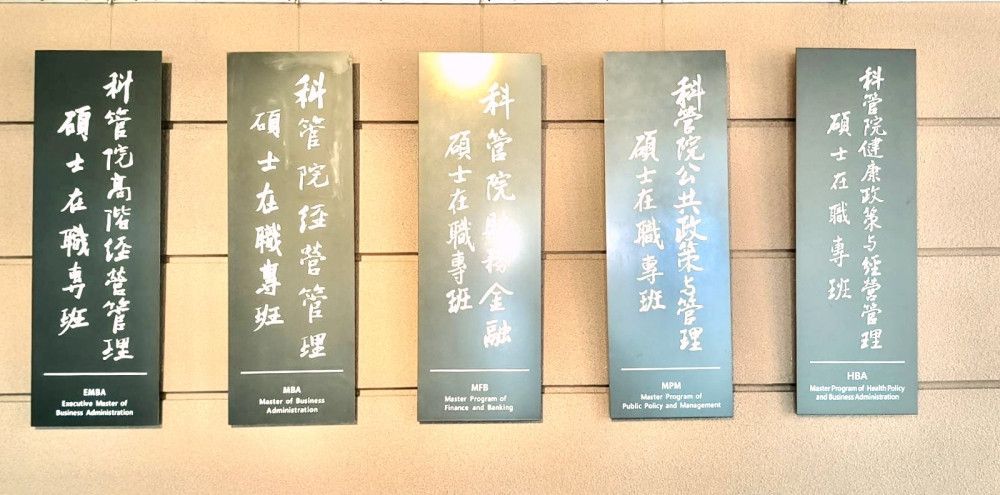 科管院高階經營管理
碩士在職專班
EMBA
Executive Master of
Business Administration
科管院經營管理
碩士在職專班
MBA
Master of Business
Administration
科管院財務金融
碩士在職專班
MFB
Master Program of
Finance and Banking
科管院公共政策与管理
碩士在職專班
MPM
Master Program of
Public Policy and Management
科管院健康政策与經營管理
碩士在職專班
HBA
Master Program of Health Policy
and Business Administration